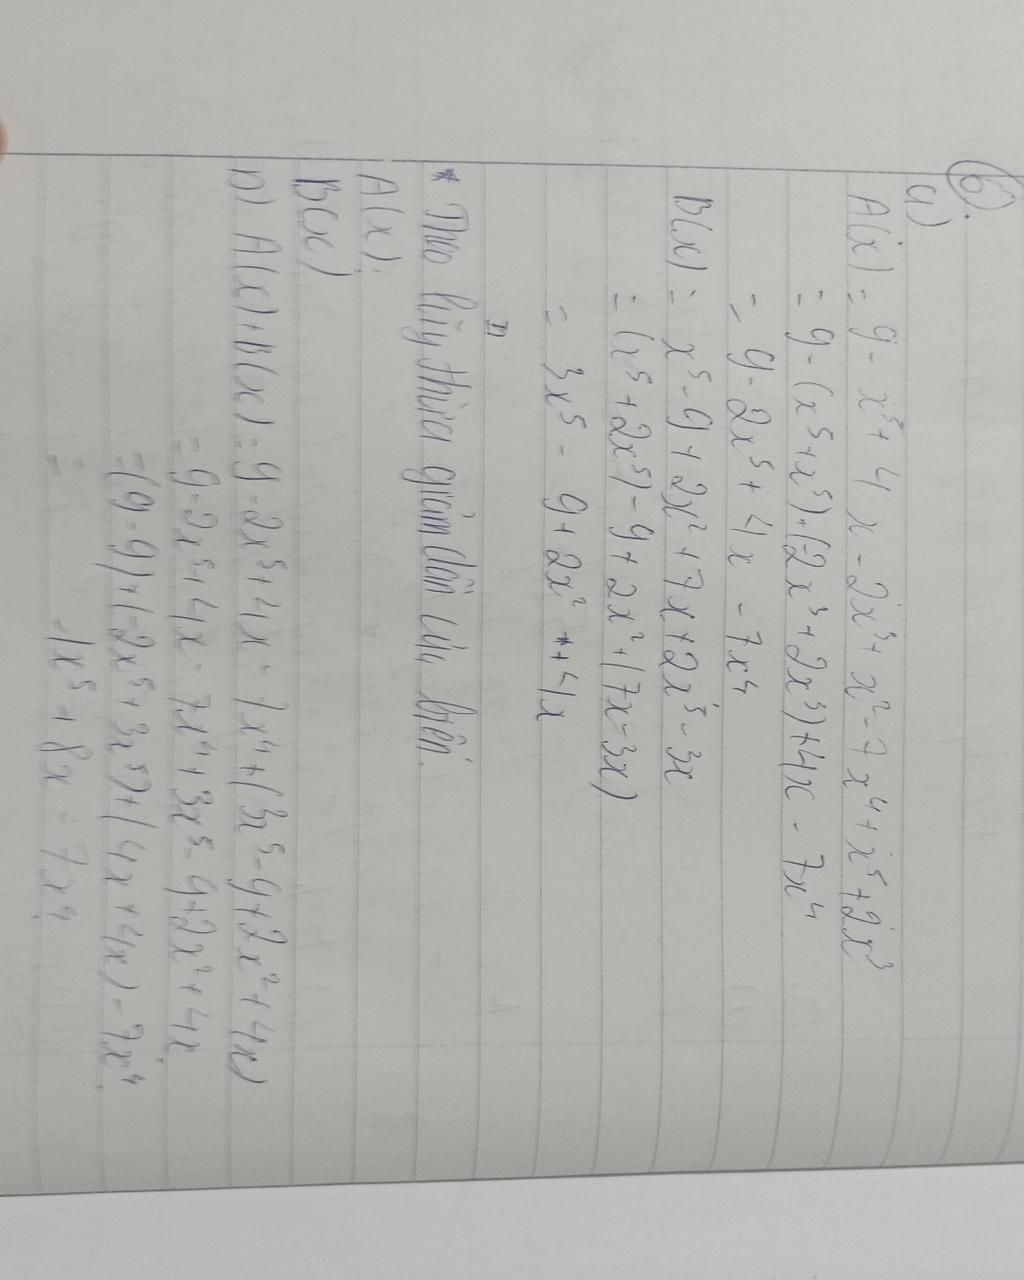 6.
a)
A(x) = 9 - x⁵ + 4x - 2x³ + x² - 7x⁴ + x⁵ + 2x³
= 9 - (x⁵ + x⁵) + (-2x³ + 2x³) + 4x - 7x⁴
= 9 - 2x⁵ + 4x - 7x⁴
B(x) = x⁵ - 9 + 2x² + 7x + 2x⁵ - 3x
= (x⁵ + 2x⁵) - 9 + 2x² + (7x - 3x)
= 3x⁵ - 9 + 2x² + 4x
* Theo lũy thừa giảm dần của biến.
A(x):
B(x)
b) A(x) + B(x) = 9 - 2x⁵ + 4x - 7x⁴ + (3x⁵ - 9 + 2x² + 4x)
= 9 - 2x⁵ + 4x - 7x⁴ + 3x⁵ - 9 + 2x² + 4x
= (9 - 9) + (-2x⁵ + 3x⁵) + (4x + 4x) - 7x⁴
= 1x⁵ + 8x - 7x⁴